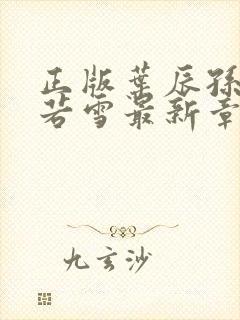 正版叶辰孙
若雪最新章
九玄沙